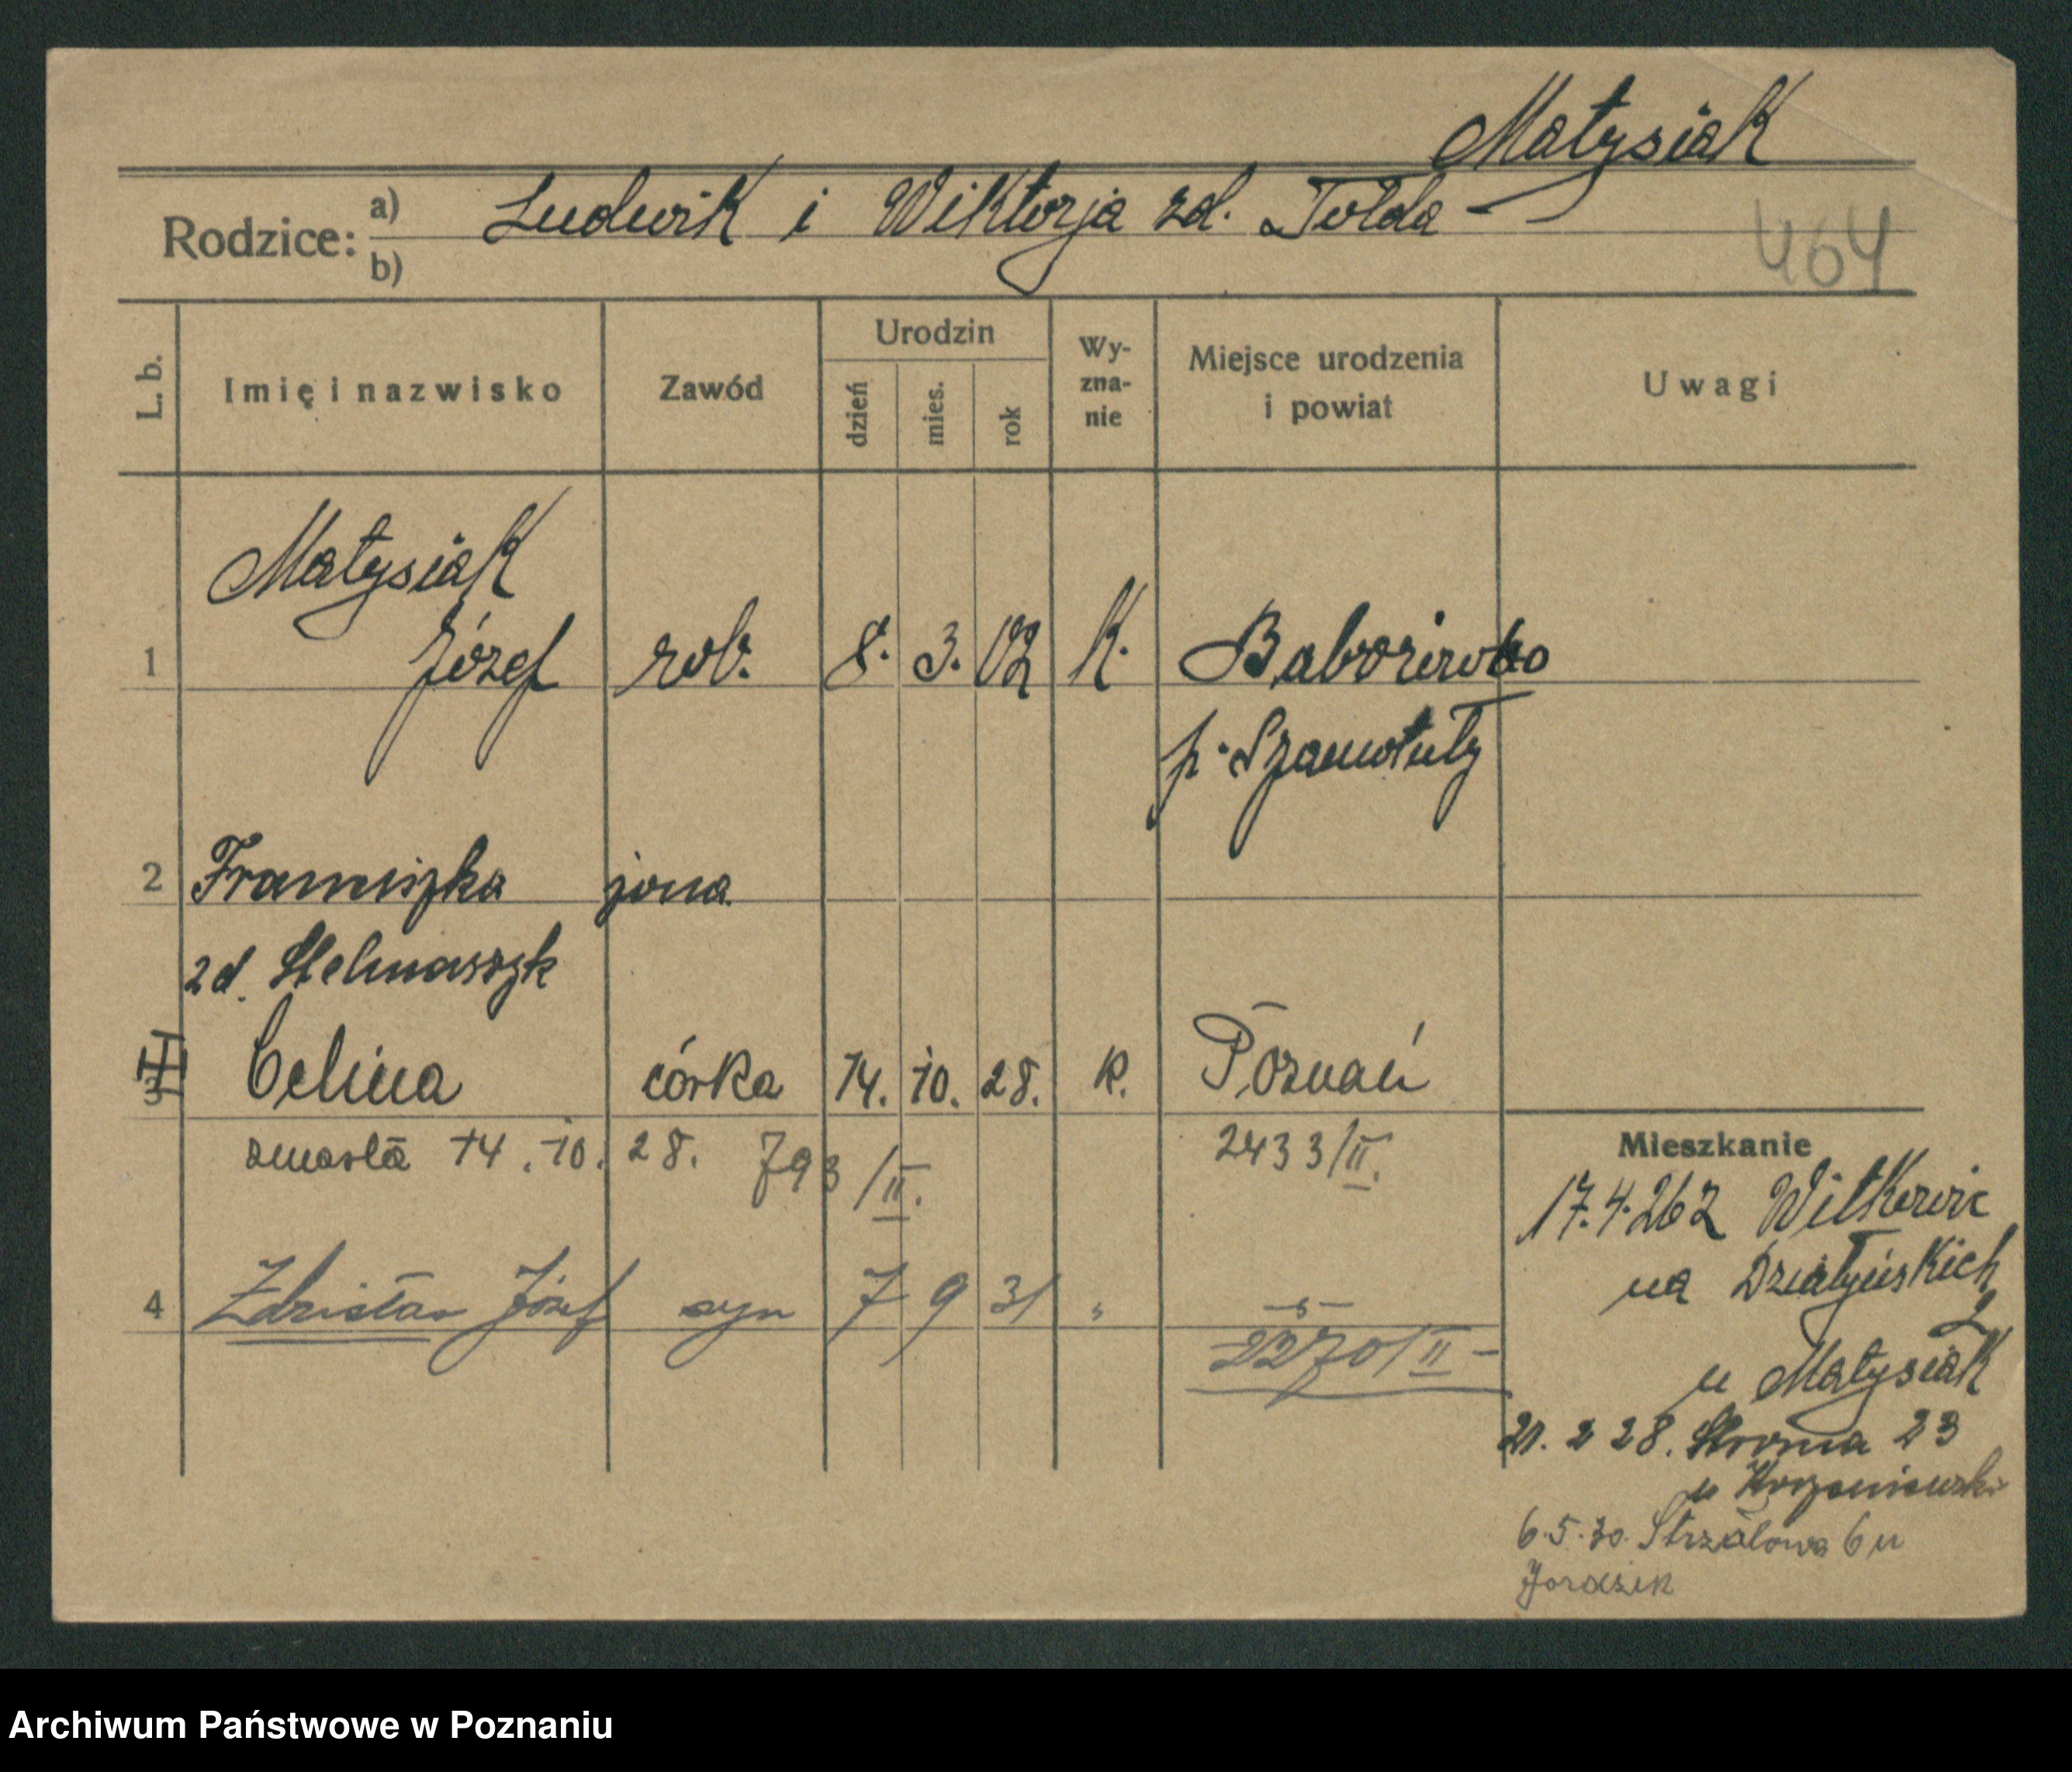 Matysiak
Rodzice: a) Ludwik i Wiktorja zd. Tolda
b)
464
L. b. Imię i nazwisko Zawód Urodzin dzień mies. rok Wy-zna-nie Miejsce urodzenia i powiat Uwagi
Matysiak
1 Józef rob. 8. 3. 02 K. Baborówko
p. Szamotuły
2 Franciszka żona
zd. Stelmaszyk
3 Celina córka 14. 10. 28. K. Poznań
zmarła 14. 10. 28. 793/II. 2433/II.
4 Zdzisław Józef syn 7 9 31 " -"-
2270/II -
Mieszkanie
17.4.26 z Witkowic
na Działyńskich
2
u Matysiak
21. 2 28. Stroma 23
u Korzeniewski
6.5.30. Strzałowa 6 u
Archiwum Państwowe w Poznaniu